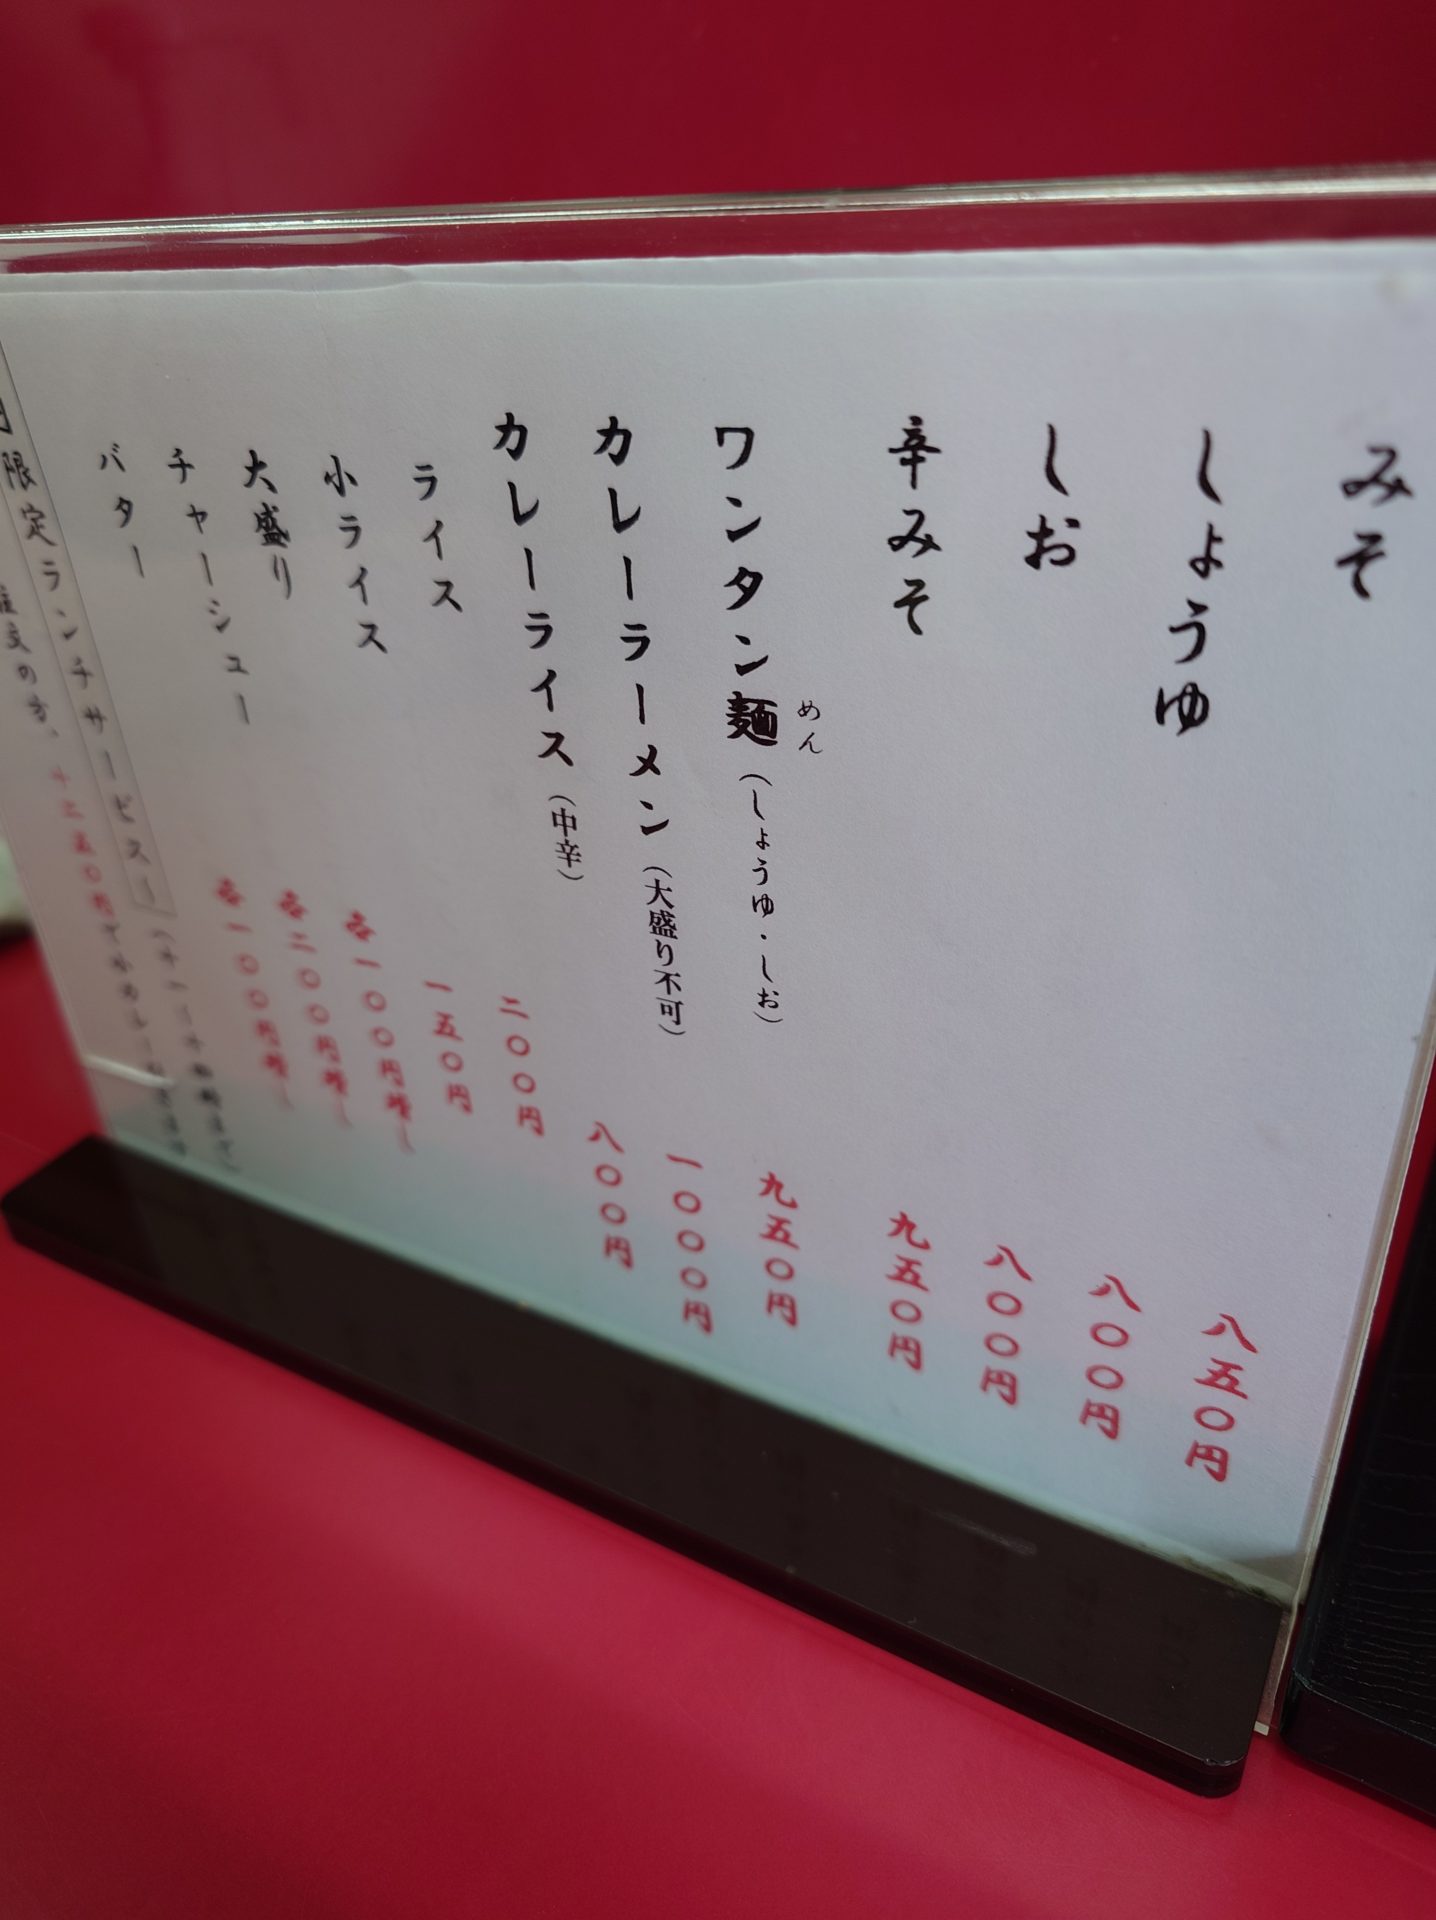 みそ 八五〇円
しょうゆ 八〇〇円
しお 八〇〇円
辛みそ 九五〇円
めん
ワンタン麺（しょうゆ・しお） 九五〇円
カレーラーメン（大盛り不可） 一〇〇〇円
カレーライス（中辛） 八〇〇円
ライス 二〇〇円
小ライス 一五〇円
大盛り 各一〇〇円増し
チャーシュー 各二〇〇円増し
バター 各一〇〇円増し
限定ランチサービス！
文の方、